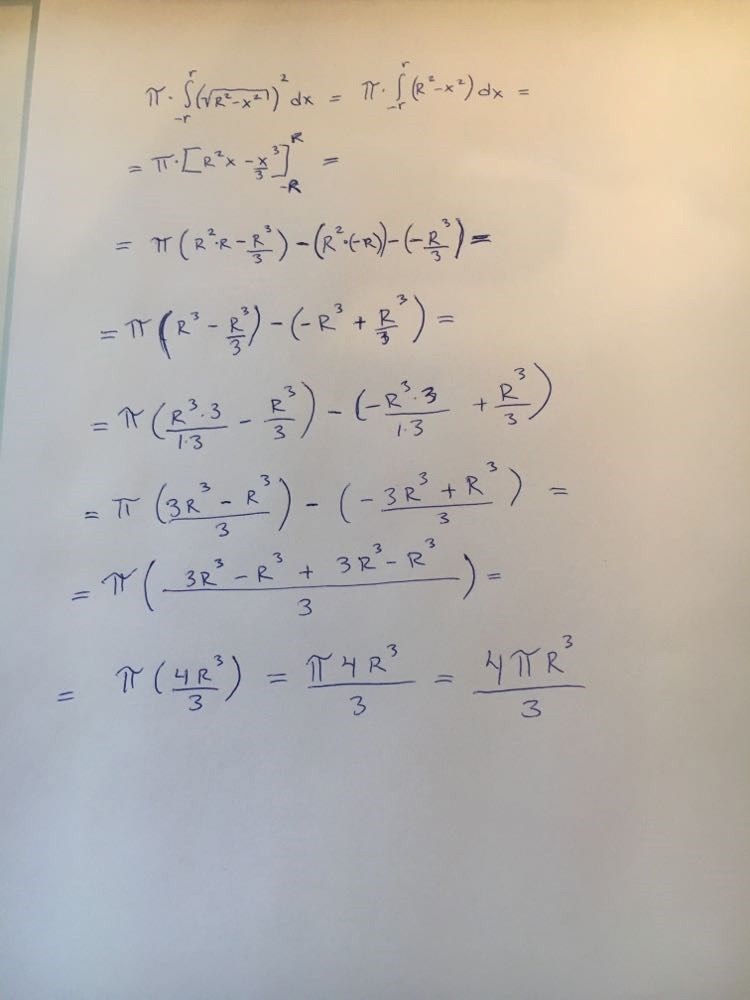 π · ∫_{-r}^{r} (√(R²-x²))² dx = π · ∫_{-r}^{r} (R²-x²) dx =
= π · [R²x - x³/3]_{-R}^{R} =
= π (R²·R - R³/3) - (R²·(-R)) - (-R³/3) =
= π (R³ - R³/3) - (-R³ + R³/3) =
= π (R³·3/1·3 - R³/3) - (-R³·3/1·3 + R³/3)
= π (3R³ - R³/3) - (-3R³ + R³/3) =
= π (3R³ - R³ + 3R³ - R³/3) =
= π (4R³/3) = π4R³/3 = 4πR³/3